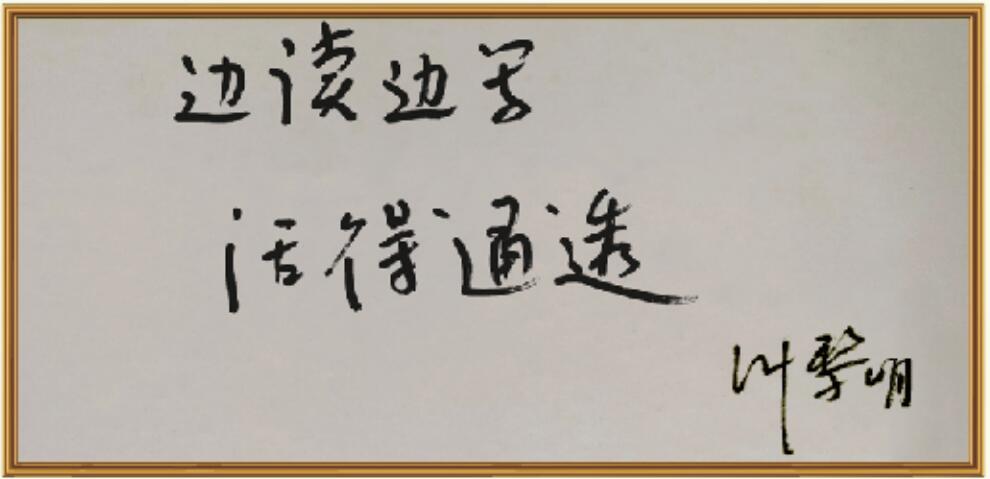 边读边写
活得通透
叶黎明